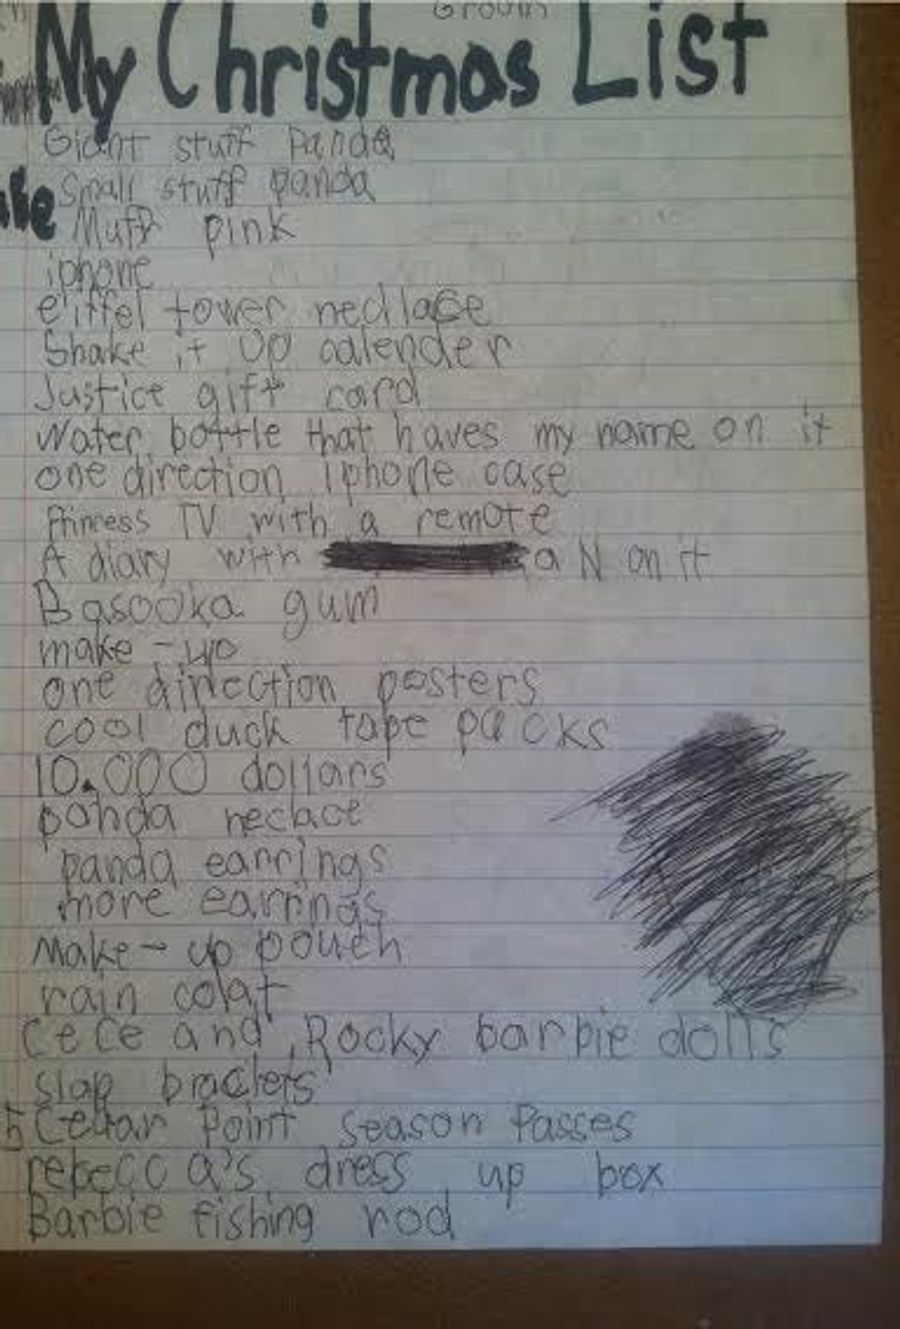 My Christmas List
Giant stuff panda
Small stuff panda
Muff pink
iphone
eiffel tower necllace
Shake it Up calender
Justice gift card
Water bottle that haves my name on it
one direction iphone case
Princess TV with a remote
A diary with a N on it
Basooka gum
make-up
one direction posters
cool duck tape packs
10.000 dollars
panda neclace
panda earrings
more earrings
Make-up pouch
rain coat
CeCe and Rocky barbie dolls
slap braclets
5 Cedar Point season Passes
rebecca's dress up box
Barbie fishing rod